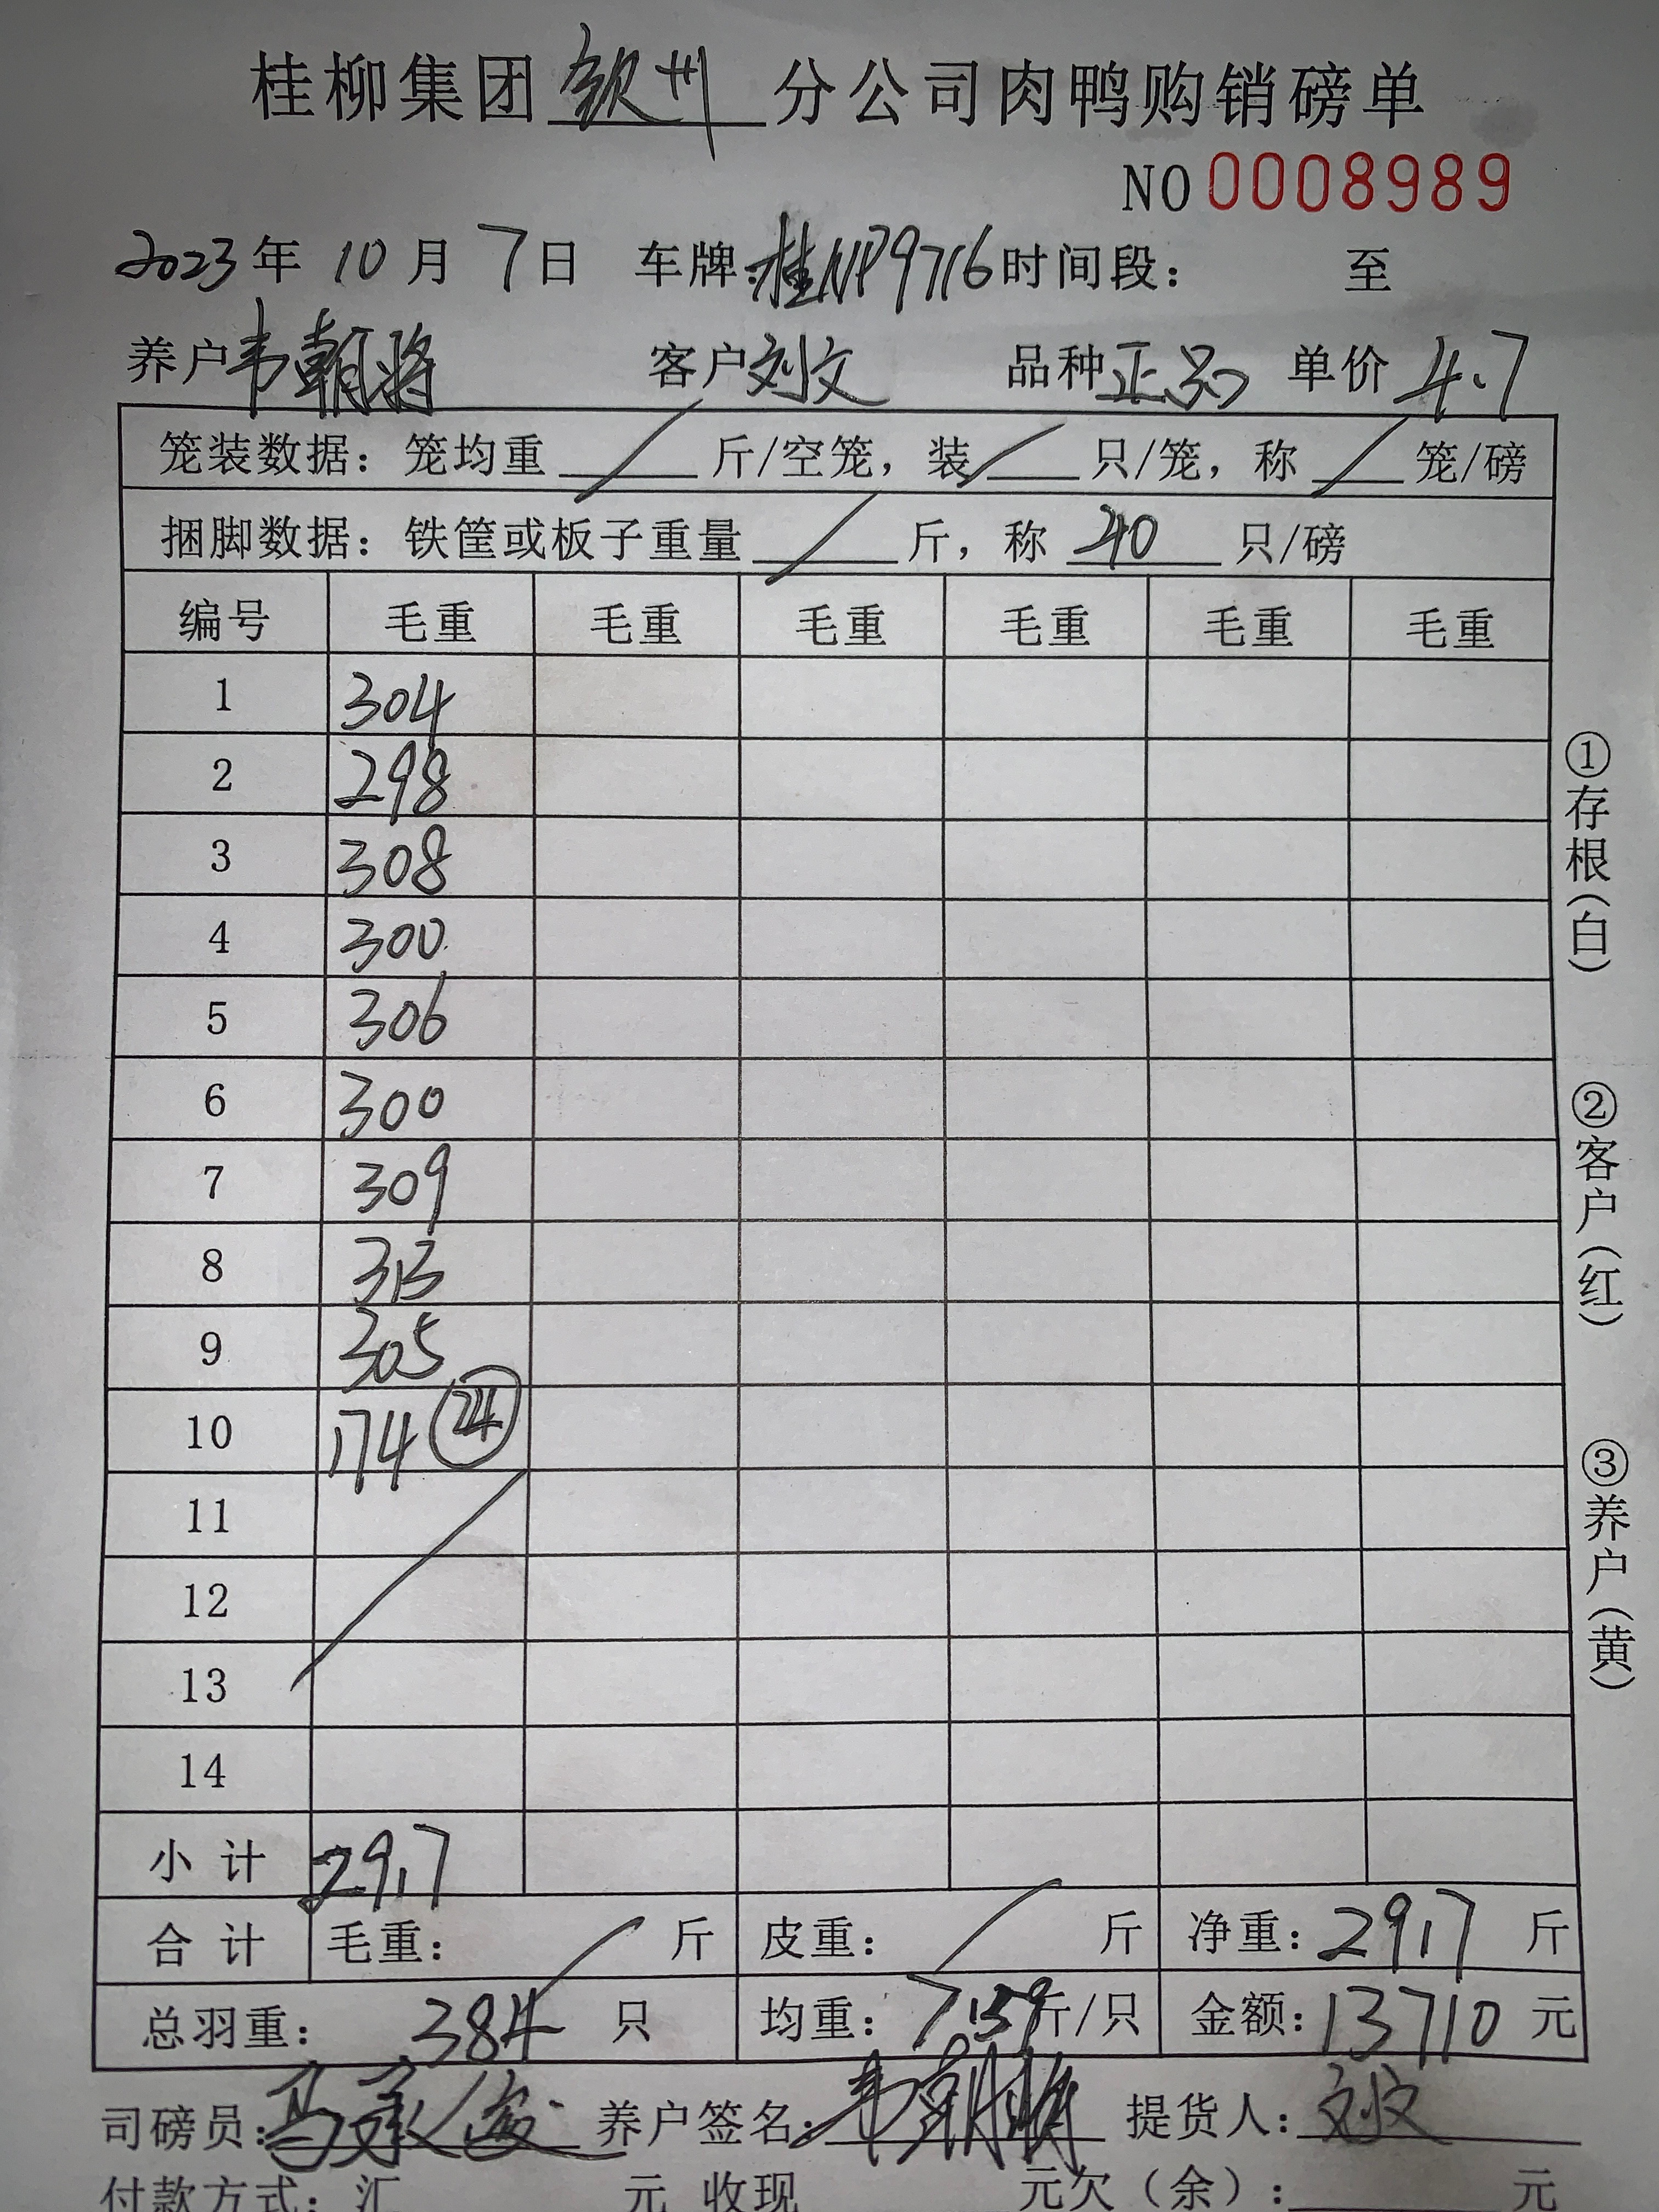 桂柳集团钦州分公司肉鸭购销磅单
NO 0008989
2023年 10月 7日 车牌:桂NP9716 时间段: 至
养户韦朝将 客户刘文 品种正品 单价4.7
笼装数据:笼均重 斤/空笼,装 只/笼,称 笼/磅
捆脚数据:铁筐或板子重量 斤,称 40 只/磅
编号 毛重 毛重 毛重 毛重 毛重 毛重
1 304
2 298
3 308
4 300
5 306
6 300
7 309
8 313
9 305
10 174 24
11
12
13
14
小计 2917
合计 毛重: 斤 皮重: 斤 净重:2917 斤
总羽重: 384 只 均重:7.59斤/只 金额:13710 元
司磅员:马承俊 养户签名:韦朝将 提货人:刘文
付款方式:汇 元 收现 元欠(余): 元
①存根(白)
②客户(红)
③养户(黄)